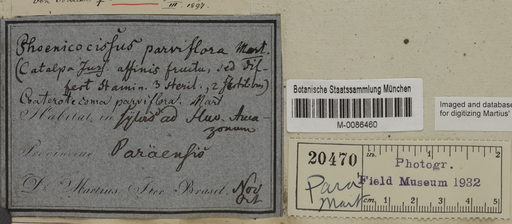 III 1897.
Phoenicocissus parviflora Mart.
(Catalpa Juss. affinis fructu, sed dif-
fert Stamin. 3 steril., 2 fertilibus)
Craterotecoma parviflora. Mart
Habitat in sylvis ad fluv. Ama-
zonum
Provinciae Paraënsis
Dr. Martius Iter Brasil. Nov
Botanische Staatssammlung München
M-0086460
Imaged and database
for digitizing Martius'
20470
in. 1 2
Photogr.
Field Museum 1932
Para
Mart
cm. 1 2 3 4 5